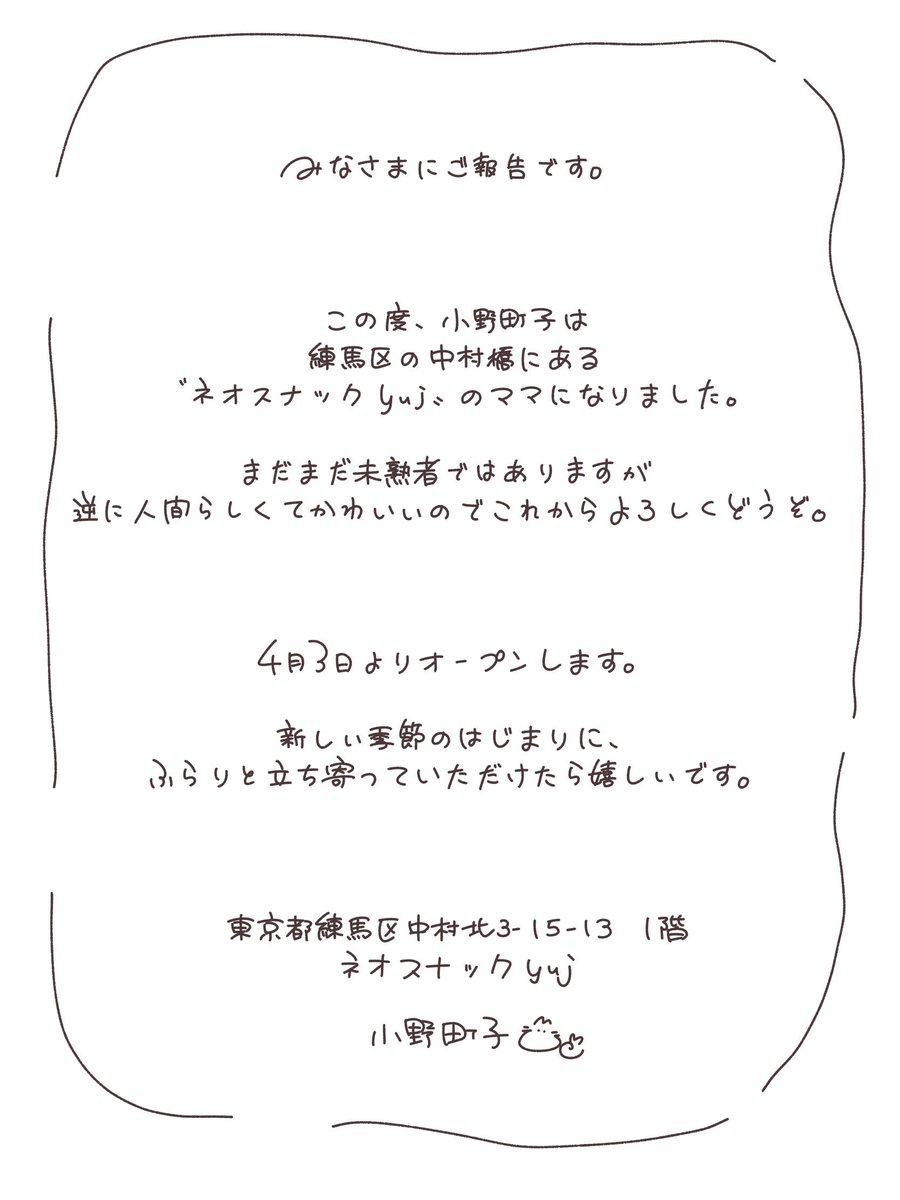 みなさまにご報告です。
この度、小野町子は
練馬区の中村橋にある
〝ネオスナックyuj〟のママになりました。
まだまだ未熟者ではありますが
逆に人間らしくてかわいいのでこれからよろしくどうぞ。
4月3日よりオープンします。
新しい季節のはじまりに、
ふらりと立ち寄っていただけたら嬉しいです。
東京都練馬区中村北3-15-13 1階
ネオスナックyuj
小野町子